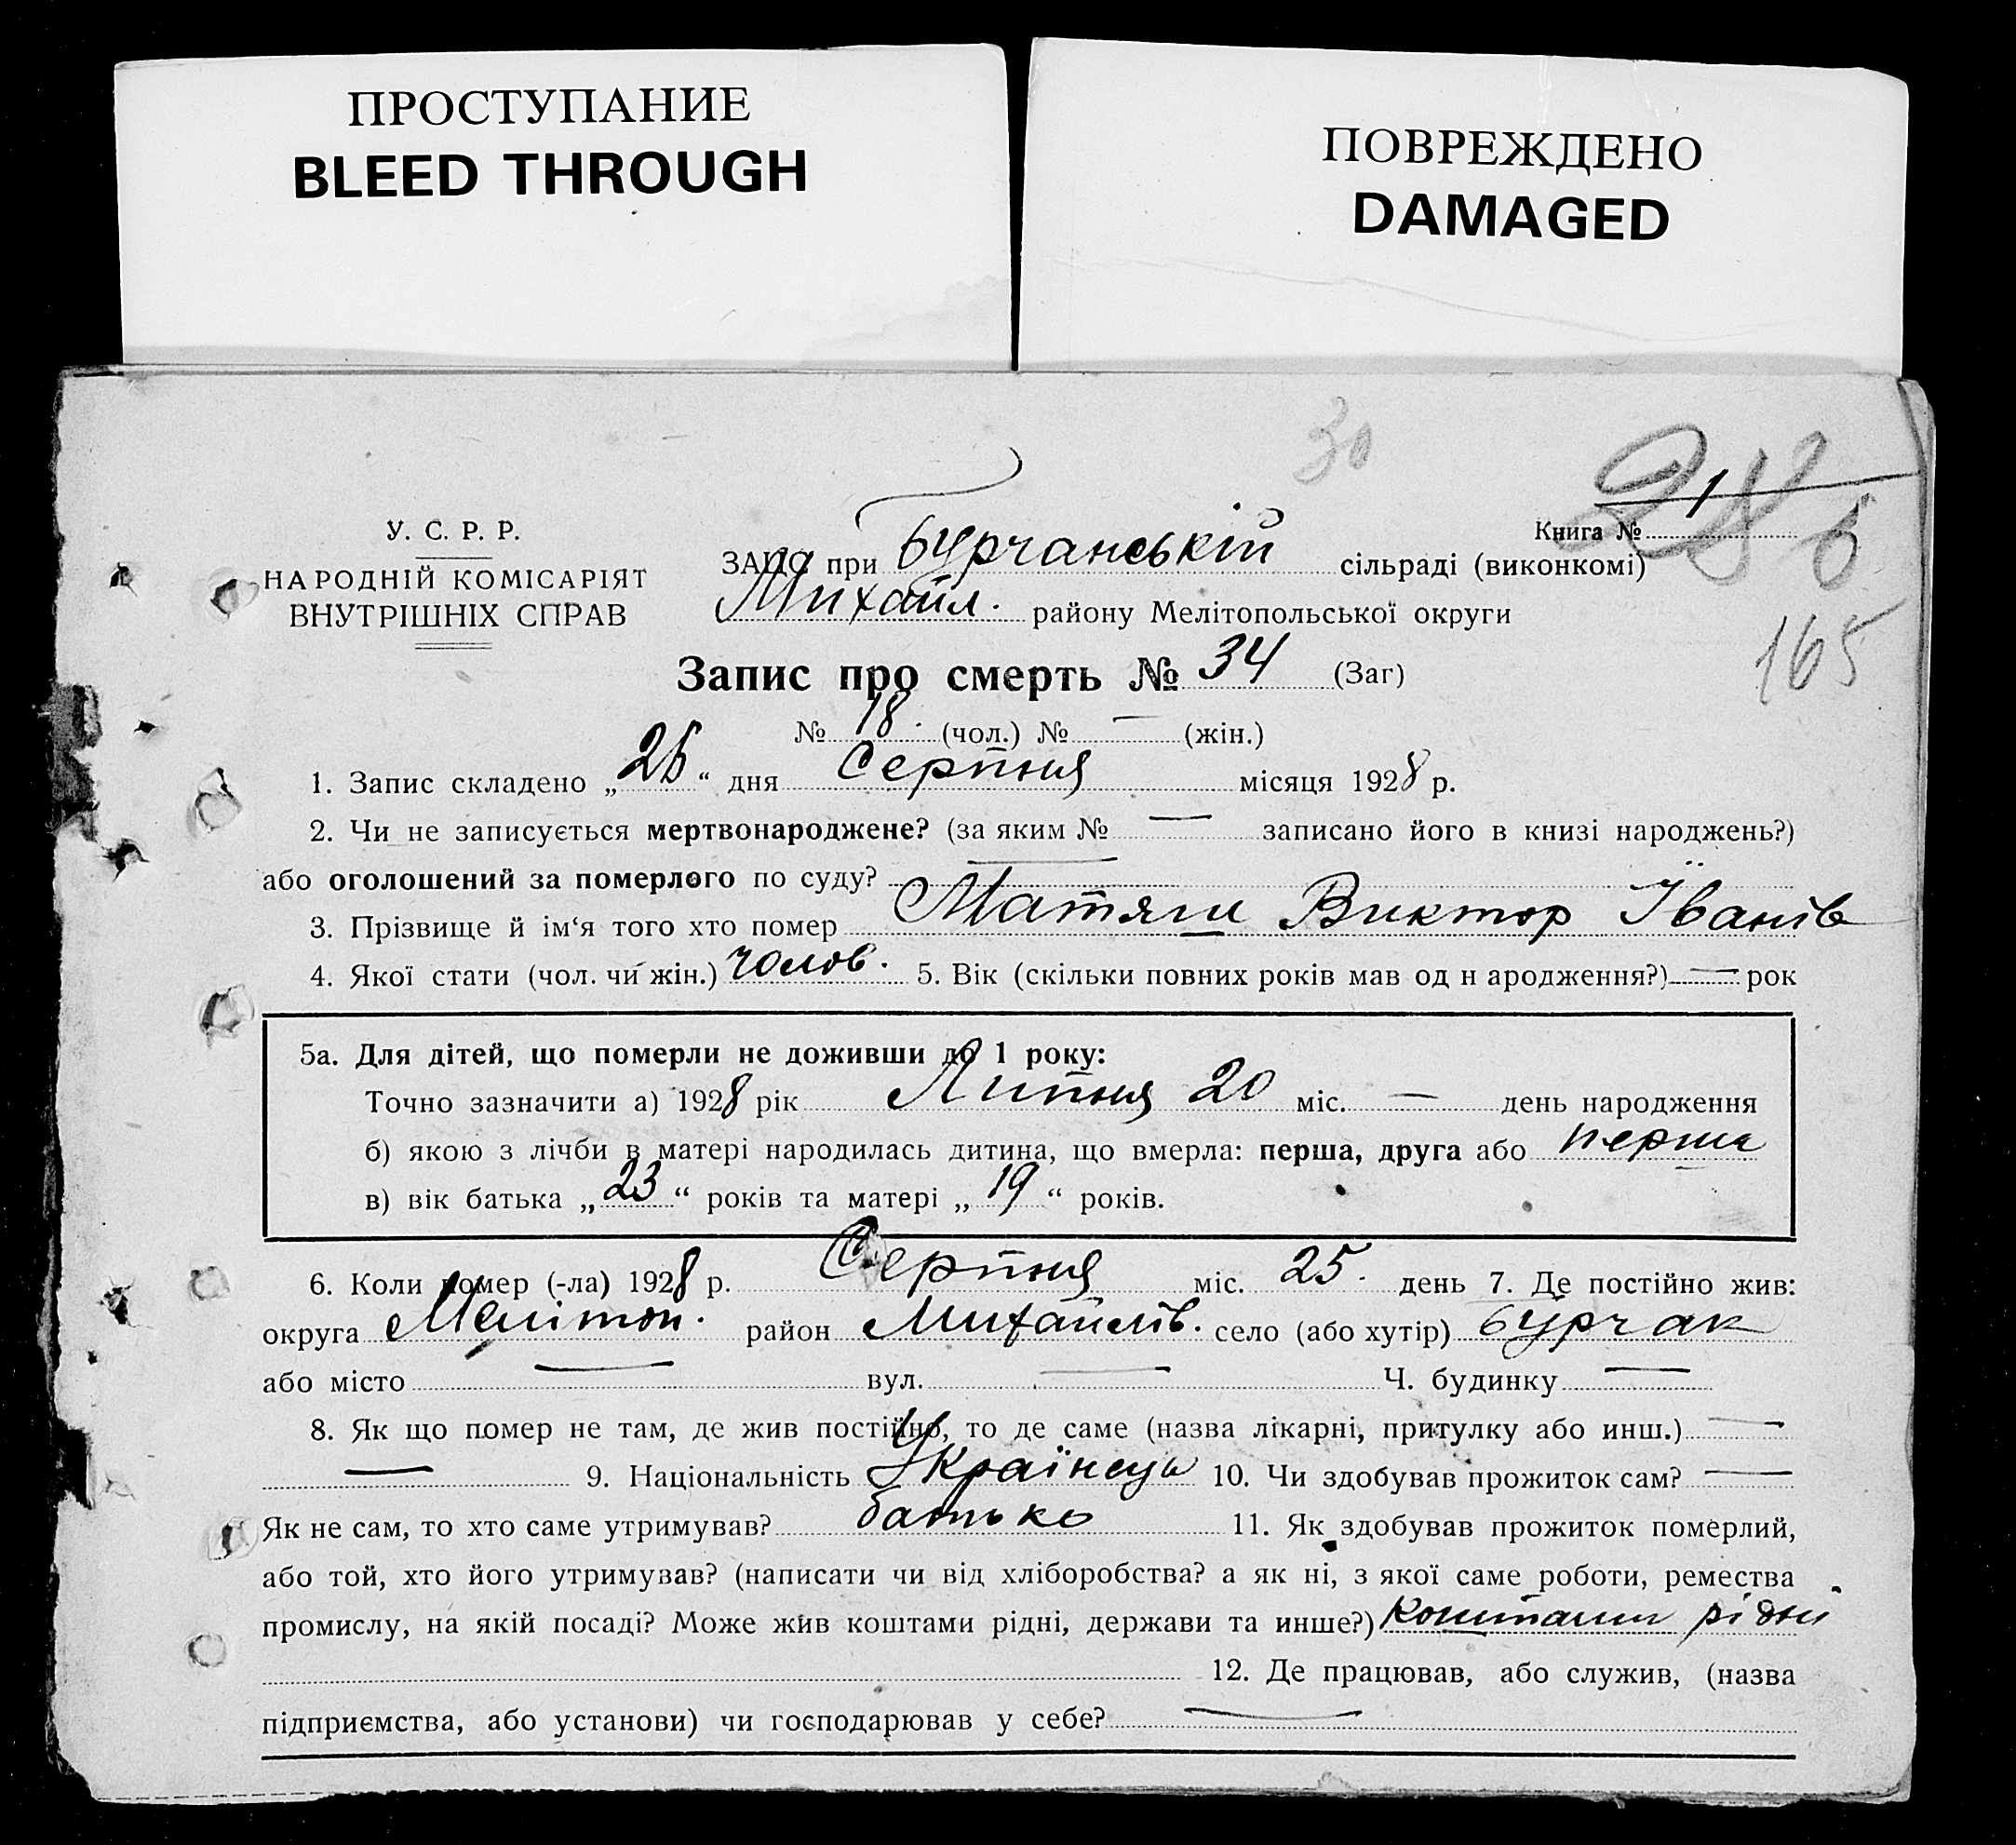 ПРОСТУПАНИЕ
BLEED THROUGH
ПОВРЕЖДЕНО
DAMAGED
30
У. С. Р. Р.
НАРОДНІЙ КОМІСАРІЯТ
ВНУТРІШНІХ СПРАВ
Книга № 1
ЗАЦС при Бурчанській сільраді (виконкомі)
Михайл. району Мелітопольської округи
165
Запис про смерть № 34 (Заг)
№ 18. (чол.) № — (жін.)
1. Запис складено „26“ дня Серпня місяця 1928 р.
2. Чи не записується мертвонароджене? (за яким № — записано його в книзі народжень?)
або оголошений за померлого по суду? —
3. Прізвище й ім‘я того хто помер Матяги Виктор Іванів
4. Якої стати (чол. чи жін.) чолов. 5. Вік (скільки повних років мав од н ародження?) — рок
5а. Для дітей, що померли не доживши до 1 року:
Точно зазначити а) 1928 рік Липня 20 міс. — день народження
б) якою з лічби в матері народилась дитина, що вмерла: перша, друга або перша
в) вік батька „23“ років та матері „19“ років.
6. Коли помер (-ла) 1928 р. Серпня міс. 25. день 7. Де постійно жив:
округа Мелітоп. район Михайлів. село (або хутір) Бурчак
або місто — вул. — Ч. будинку —
8. Як що помер не там, де жив постійно, то де саме (назва лікарні, притулку або инш.) —
— 9. Національність Українець 10. Чи здобував прожиток сам? —
Як не сам, то хто саме утримував? батько 11. Як здобував прожиток померлий,
або той, хто його утримував? (написати чи від хліборобства? а як ні, з якої саме роботи, ремества
промислу, на якій посаді? Може жив коштами рідні, держави та инше?) Коштами рідні
12. Де працював, або служив, (назва
підприємства, або установи) чи господарював у себе? —